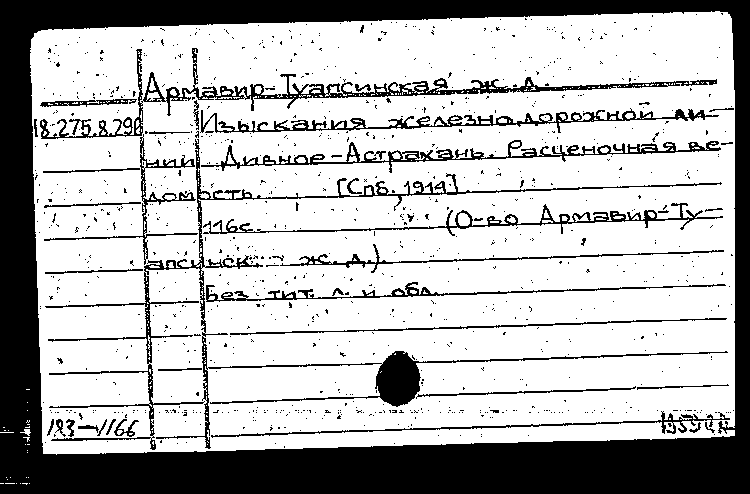 Армавир-Туапсинская ж. д.
18.275.8.290 Изыскания железно дорожной ли-
нии Дивное-Астрахань. Расценочная ве-
домость. [Спб, 1914].
116с. (О-во Армавир-Ту-
апсинск. ж. д.).
Без тит. л. и обл.
193-1/166